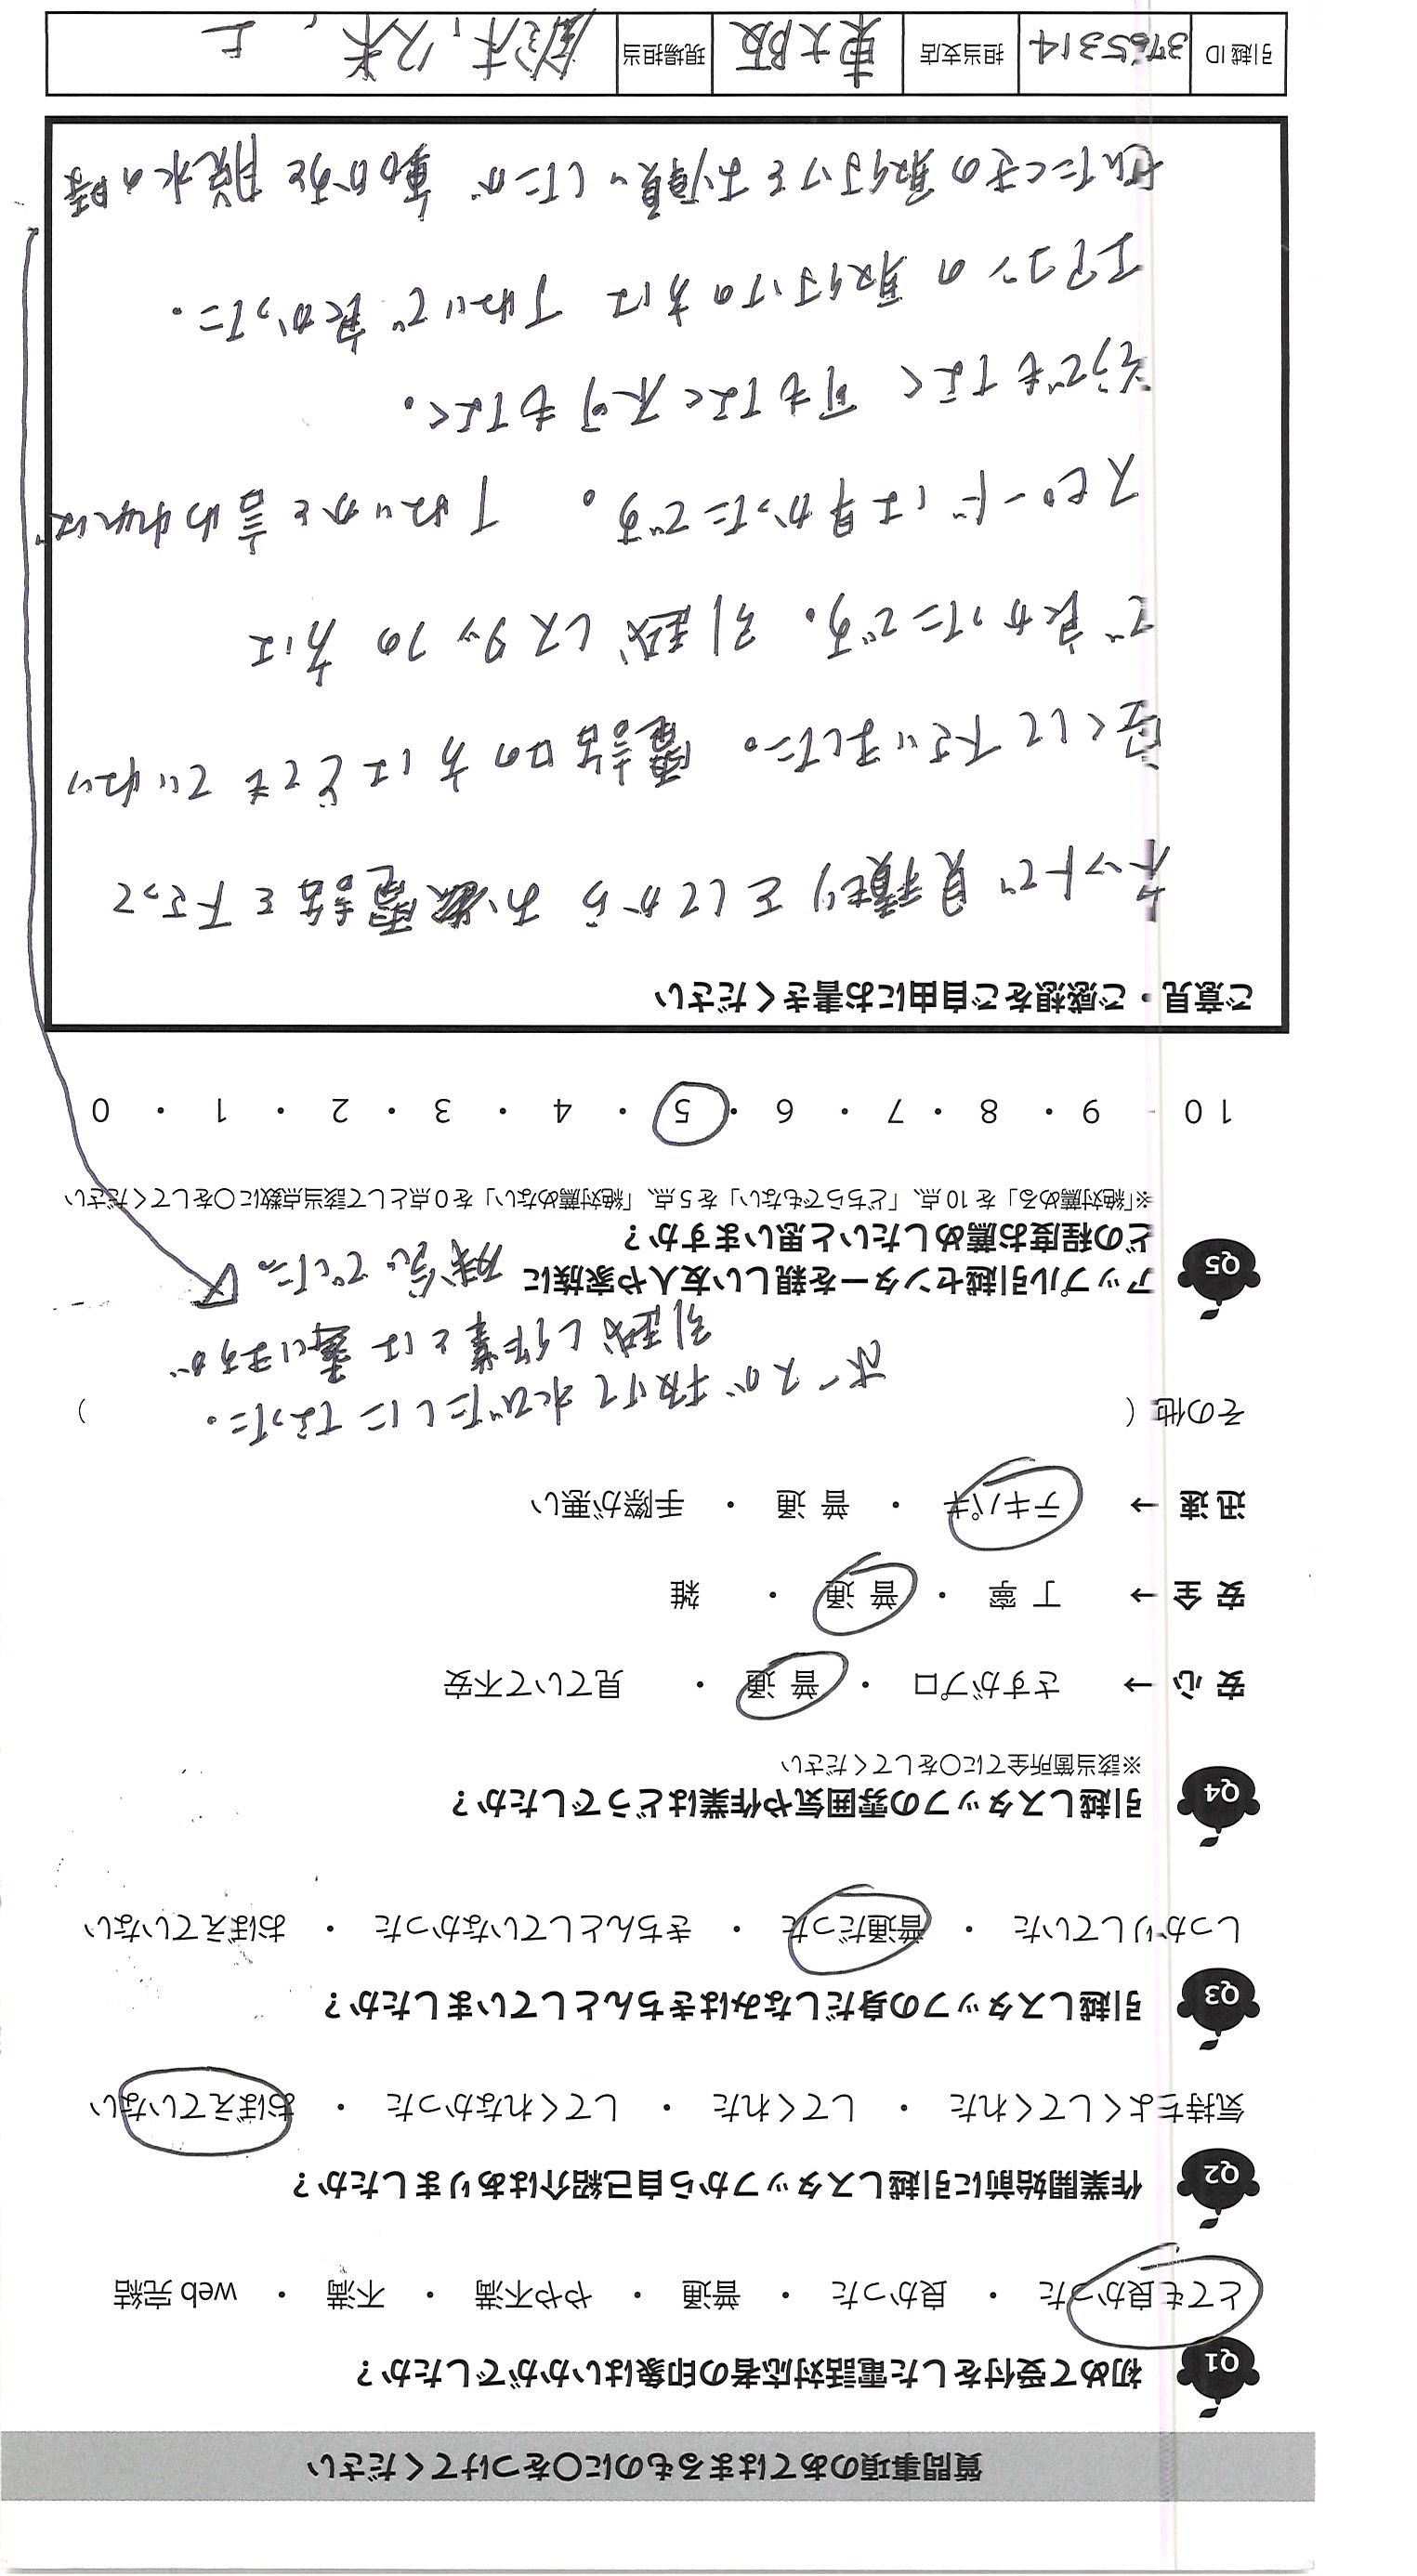 質問事項のあてはまるものに○をつけてください
Q1 初めて受付をした電話対応者の印象はいかがでしたか？
とても良かった ・ 良かった ・ 普通 ・ やや不満 ・ 不満 ・ web完結
Q2 作業開始前に引越しスタッフから自己紹介はありましたか？
気持ちよくしてくれた ・ してくれた ・ してくれなかった ・ おぼえていない
Q3 引越しスタッフの身だしなみはきちんとしていましたか？
しっかりしていた ・ 普通だった ・ きちんとしていなかった ・ おぼえていない
Q4 引越しスタッフの雰囲気や作業はどうでしたか？
※該当箇所全てに○をしてください
安心 → さすがプロ ・ 普通 ・ 見ていて不安
安全 → 丁寧 ・ 普通 ・ 雑
迅速 → テキパキ ・ 普通 ・ 手際が悪い
その他（ ホースが抜けて水びたしになった。 ）
引越し作業とは違いますが
残念でした。
Q5 アップル引越センターを親しい友人や家族に
どの程度お薦めしたいと思いますか？
※「絶対薦める」を10点、「どちらでもない」を5点、「絶対薦めない」を0点として該当点数に○をしてください
10 ・ 9 ・ 8 ・ 7 ・ 6 ・ 5 ・ 4 ・ 3 ・ 2 ・ 1 ・ 0
ご意見・ご感想をご自由にお書きください
ネットで見積りをしてからお電話を下さって
安くして下さいました。電話口の方はとてもていねい
で良かったです。引越しスタッフの方は
スピードは早かったです。丁ねいかと言われれば
そうでもなく可もなく不可もなく。
エアコンの取付けの方は丁ねいで良かった。
せんたくきの取付けをお願いしたが動かすと脱水の時
引越ID 3765314 担当支店 東大阪 現場担当 鈴木、久米、上